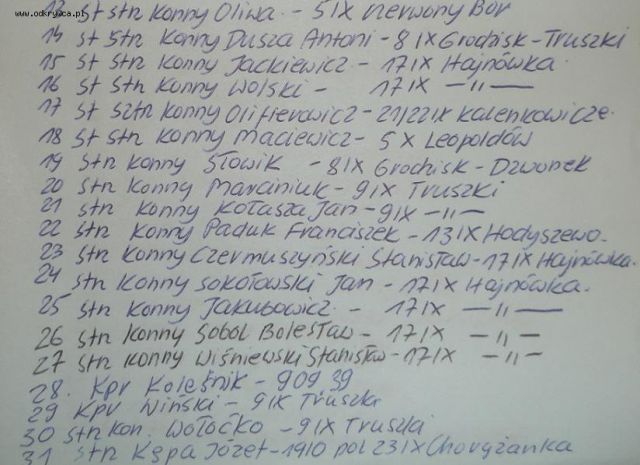 www.odkrywca.pl
13 st str konny Oliwa - 5 IX Czerwony Bór
14 st str konny Dusza Antoni - 8 IX Grodzisk - Truszki
15 st str konny Jackiewicz - 17 IX Hajnówka
16 st str konny Wolski - 17 IX — „ —
17 st sztr konny Olifierowicz - 21/22 IX Kalenkowicze.
18 st str konny Maciewicz - 5 X Leopoldów
19 str konny Słowik - 8 IX Grodzisk - Dzwonek
20 str konny Marciniuk - 9 IX Truszki
21 str konny Kołasza Jan - 9 IX — „ —
22 str konny Paduk Franciszek - 13 IX Hodyszewo.
23 str konny Czermuszyński Stanisław - 17 IX Hajnówka.
24 str konny Sokołowski Jan - 17 IX Hajnówka.
25 str konny Jakubowicz - 17 IX — „ —
26 str konny Sobol Bolesław - 17 IX — „ —
27 str konny Wiśniewski Stanisłw - 17 IX — „ —
28. Kpr Koleśnik - 9 09 39
29 Kpr Niński - 9 IX Truszki
30 str kon. Wołoćko - 9 IX Truszki
31 str Kępa Józef - 1910 pol 23 IX Chorążanka